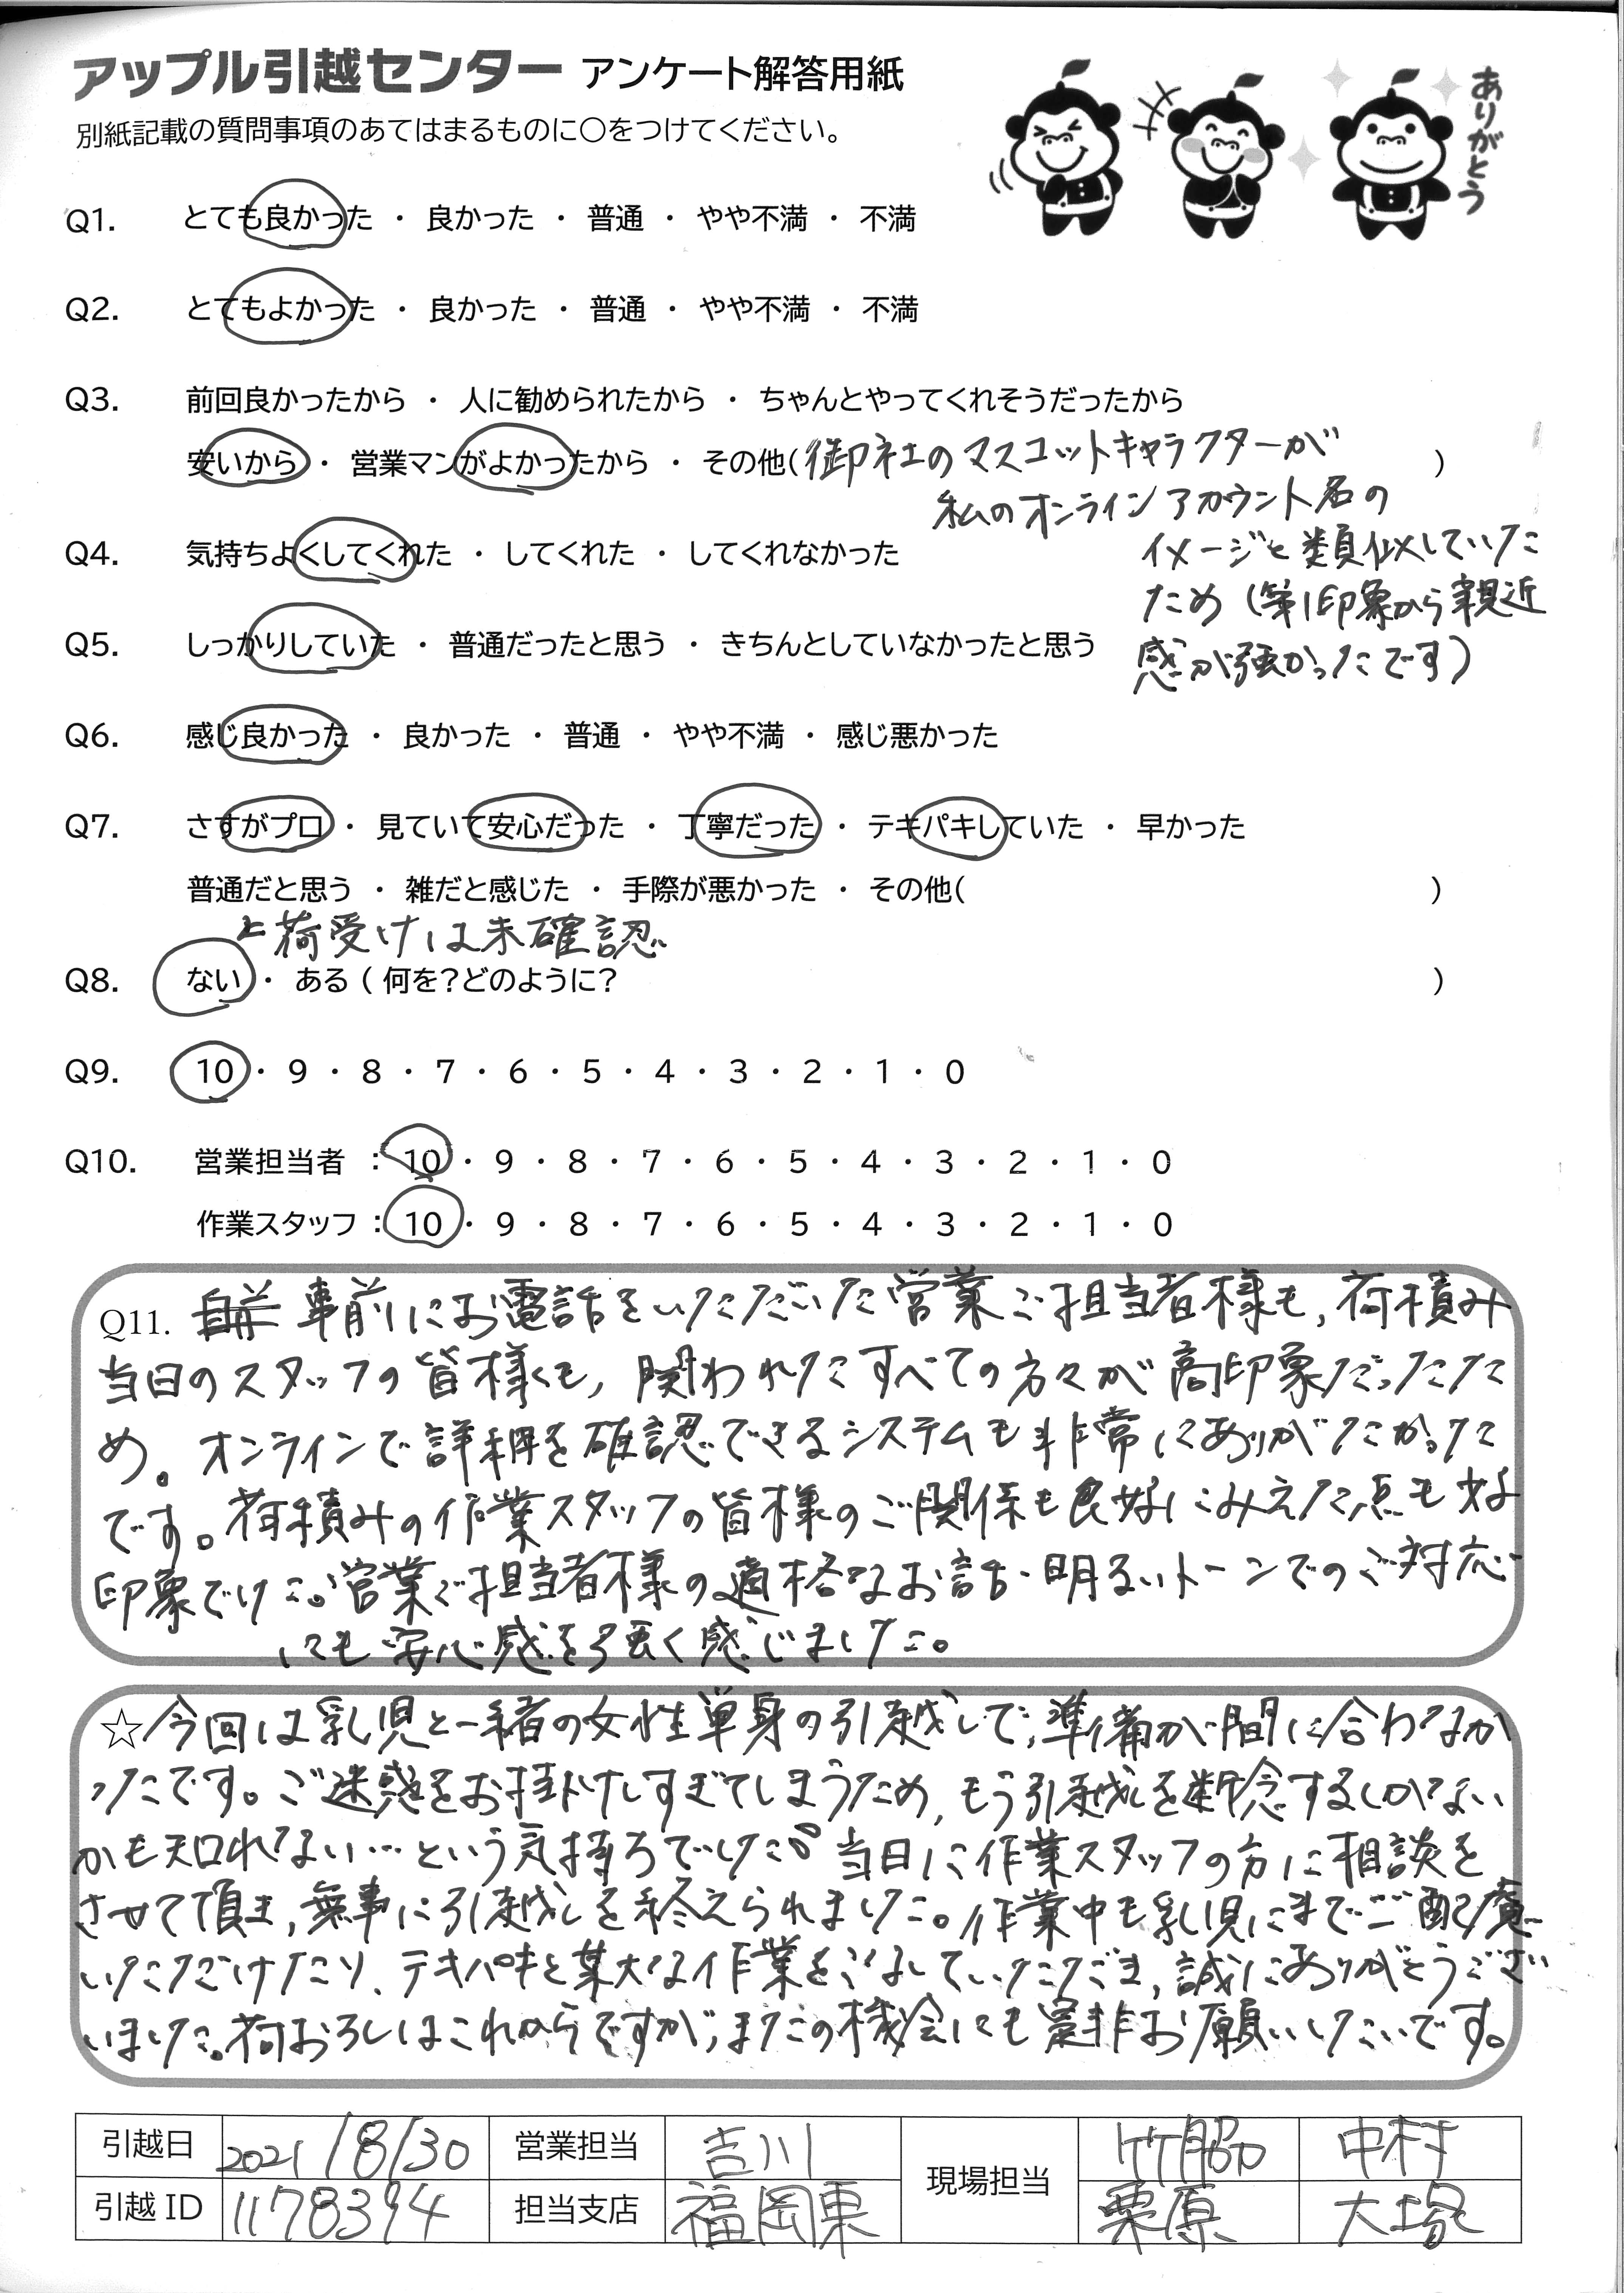 アップル引越センター アンケート解答用紙
別紙記載の質問事項のあてはまるものに○をつけてください。
ありがとう
Q1. とても良かった ・ 良かった ・ 普通 ・ やや不満 ・ 不満
Q2. とてもよかった ・ 良かった ・ 普通 ・ やや不満 ・ 不満
Q3. 前回良かったから ・ 人に勧められたから ・ ちゃんとやってくれそうだったから
安いから ・ 営業マンがよかったから ・ その他(御社のマスコットキャラクターが )
私のオンラインアカウント名の
イメージと類似していた
ため(第1印象から親近
感が強かったです)
Q4. 気持ちよくしてくれた ・ してくれた ・ してくれなかった
Q5. しっかりしていた ・ 普通だったと思う ・ きちんとしていなかったと思う
Q6. 感じ良かった ・ 良かった ・ 普通 ・ やや不満 ・ 感じ悪かった
Q7. さすがプロ ・ 見ていて安心だった ・ 丁寧だった ・ テキパキしていた ・ 早かった
普通だと思う ・ 雑だと感じた ・ 手際が悪かった ・ その他( )
荷受けは未確認
Q8. ない ・ ある ( 何を?どのように? )
Q9. 10 ・ 9 ・ 8 ・ 7 ・ 6 ・ 5 ・ 4 ・ 3 ・ 2 ・ 1 ・ 0
Q10. 営業担当者 : 10 ・ 9 ・ 8 ・ 7 ・ 6 ・ 5 ・ 4 ・ 3 ・ 2 ・ 1 ・ 0
作業スタッフ : 10 ・ 9 ・ 8 ・ 7 ・ 6 ・ 5 ・ 4 ・ 3 ・ 2 ・ 1 ・ 0
Q11. 事前にお電話をいただいた営業ご担当者様も、荷積み
当日のスタッフの皆様も、関われたすべての方々が高印象だったた
め。オンラインで詳細を確認できるシステムも非常にありがたかった
です。荷積みの作業スタッフの皆様のご関係も良好にみえた点も好
印象でした。営業ご担当者様の適格なお話・明るいトーンでのご対応
にも安心感を強く感じました。
☆今回は乳児と一緒の女性単身の引越しで、準備が間に合わなか
ったです。ご迷惑をお掛けしすぎてしまうため、もう引越しを断念するしかない
かも知れない…という気持ちでした。当日に作業スタッフの方に相談を
させて頂き、無事に引越しを終えられました。作業中も乳児にまでご配慮
いただけたり、テキパキと莫大な作業をこなしていただき、誠にありがとうござい
いました。荷おろしはこれからですが、またの機会にも是非お願いしたいです。
引越日 2021/8/30 営業担当 吉川 現場担当 竹脇 中村
引越ID 1178394 担当支店 福岡東 栗原 大場